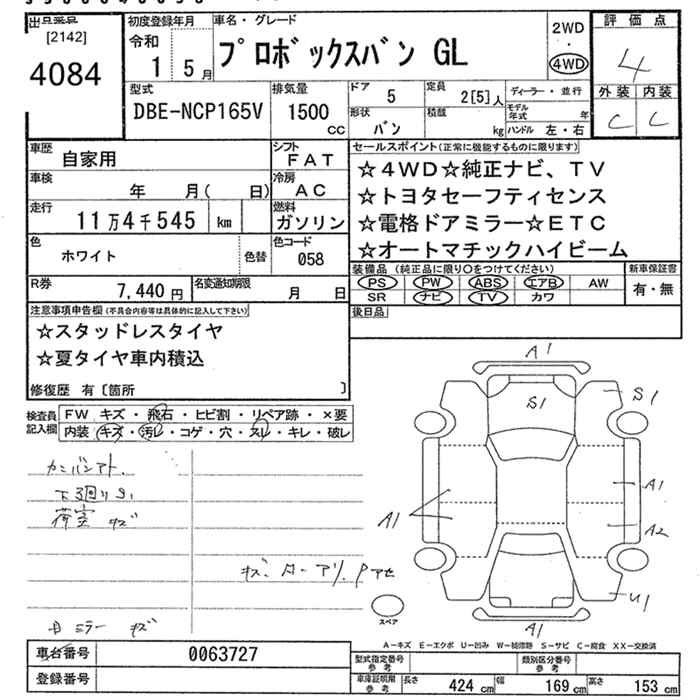 出品番号
[2142]
4084
初度登録年月
令和
1 5月
車名・グレード
プロボックスバン GL
2WD
・
4WD
評価点
4
外装 内装
C C
型式
DBE-NCP165V
排気量
1500
cc
ドア
5
定員
2[5]人
形状
バン
積載
kg
ディーラー・並行
モデル年式 年
ハンドル 左・右
車歴
自家用
シフト
FAT
車検
年 月( 日)
冷房
AC
走行
11万4千545 km
燃料
ガソリン
色
ホワイト
色替
色コード
058
R券
7,440円
名変通知期限
月 日
セールスポイント(正常に機能するものに限ります)
☆4WD☆純正ナビ、TV
☆トヨタセーフティセンス
☆電格ドアミラー☆ETC
☆オートマチックハイビーム
装備品 (純正品に限り○をつけてください)
PS PW ABS エアB AW
SR ナビ TV カワ
新車保証書
有・無
後日品
注意事項申告欄(不具合内容等は具体的に記入して下さい)
☆スタッドレスタイヤ
☆夏タイヤ車内積込
修復歴 有〔箇所 〕
検査員記入欄
FW キズ・飛石・ヒビ割・リペア跡・×要
内装 キズ・汚レ・コゲ・穴・スレ・キレ・破レ
カンバンアト.
下廻りS1
荷室 キズ
ミラー キズ
A1
S1
S1
A1
A1
A2
U1
A1
スペア
A-キズ E-エクボ U-凹み W-補修跡 S-サビ C-腐食 XX-交換済
車台番号
0063727
登録番号
型式指定番号 参考
類別区分番号 参考
車庫証明用 参考
長さ 424 cm 幅 169 cm 高さ 153 cm